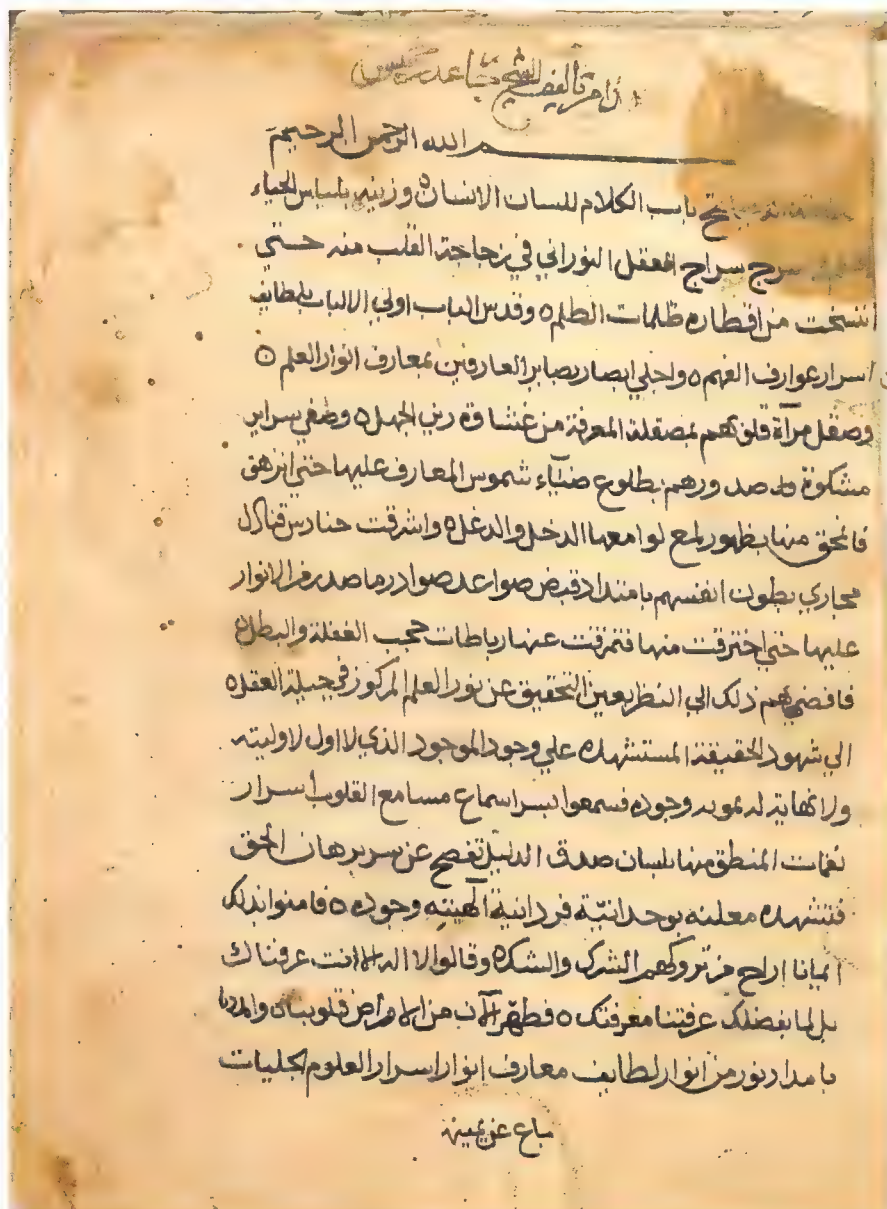 تأليف الشيخ
بسم الله الرحمن الرحيم
باب الكلام للسان الانسان ٥ وزينه بلباس الحياء
سرج سراج العقل النوراني في زجاجة القلب منه حتي
انتسخت من اقطاره ظلمات الظلم ٥ وقدس الباب اولي الالباب بلطايف
اسرار عوارف الفهم ٥ واجلي ابصار بصاير العارفين بمعارف انوار العلم ٥
وصقل مرآة قلوبهم بمصقلة المعرفة من غشاوة رين الجهل ٥ وصفي سراير
مشكوة صدورهم بطلوع ضيآء شموس المعارف عليها حتي انزهق
فانمحق منها بظهور لمع لوامعها الدخل والدغل ٥ واشرقت حنادس
مجاري بطون انفسهم بامتداد صوادر ما صدر من الانوار
عليها حتي اخترقت منها فتمزقت عنها رباطات حجب الغفلة والبطل ٥
فافضي بهم ذلك الي النظر بعين التحقيق عن نور العلم المركوز في جبلة العقل ٥
الي شهود الحقيقة المستشهده علي وجود الموجود الذي لا اول لاوليته
ولا نهاية له وجوده فسمعوا بسر اسماع مسامع القلوب اسرار
نغمات المنطق منها بلسان صدق الدليل تفصح عن سر برهان الحق
فتشهده معلنه بوحدانيّة فردانية الهيته وجوده ٥ فامنوا بذلك
ايمانا ازاح الشرك والشك ٥ وقالوا لا اله الا انت عرفناك
بل لما بفضلك عرفتنا معرفتك ٥ فطهّر الآن من الامراض قلوبنا ٥
بامداد نور من انوار لطايف معارف انوار اسرار العلوم الجليات